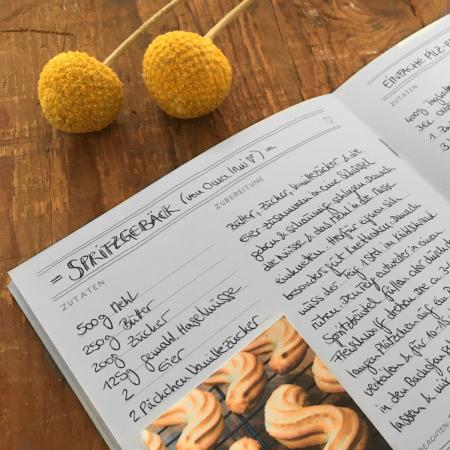 = SPRITZGEBÄCK (von Oma Irmi ♡) =
ZUTATEN
500g Mehl
250g Butter
200g Zucker
125g gemahl. Haselnüsse
2 Eier
2 Päckchen Vanillezucker
ZUBEREITUNG
Butter, Zucker, Vanillezucker & die
Eier zusammen in eine Schüssel
geben & schaumig schlagen. Danach
die Nüsse & das Mehl in die Masse
einkneten. Hierfür eignen sich
besonders gut Knethaken. Danach
muss der Teig 1 Std. im Kühlschrank
ruhen. Den Teig entweder in einen
Spritzbeutel füllen oder durch d
Fleischwolf drehen. Die ca. 3-
langen Plätzchen auf ein
verteilen & für 10-15
in den Backofen
lassen & mit
BEACHTEN
EINFACHE PILZ-P
ZUTATEN
400g
3EL
1
3